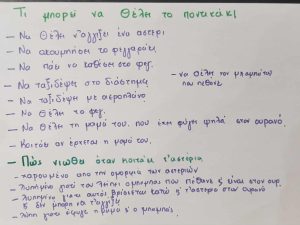 Τι μπορεί να θέλει το ποντικάκι
- Να θέλει ν'αγγίξει ένα αστέρι
- Να ακουμπήσει το φεγγαράκι
- Να πάει να καθίσει στο φεγ.
- Να ταξιδέψει στο διάστημα
- να θέλει τον μπαμπά του που πέθανε
- Να ταξιδέψει με αεροπλάνο
- Να θέλει το φεγ.
- Να θέλει τη μαμά του που έχει φύγει ψηλά στον ουρανό.
- Κοιτάει αν έρχεται η μαμά του.
- Πώς νιώθει όταν κοιτάει τ'αστέρια
- χαρούμενο από την ομορφιά των αστεριών
- λυπημένο γιατί του λείπει ο μπαμπάς που πέθανε ξ είναι στον ουρ.
- λυπημένο γιατί αυτός βρίσκεται κάτω ξ τ'αστέρια στον ουρανό
ξ δεν μπορεί να τ'αγγίξει
- λύπη γιατί έφυγε η μαμά ξ ο μπαμπάς.